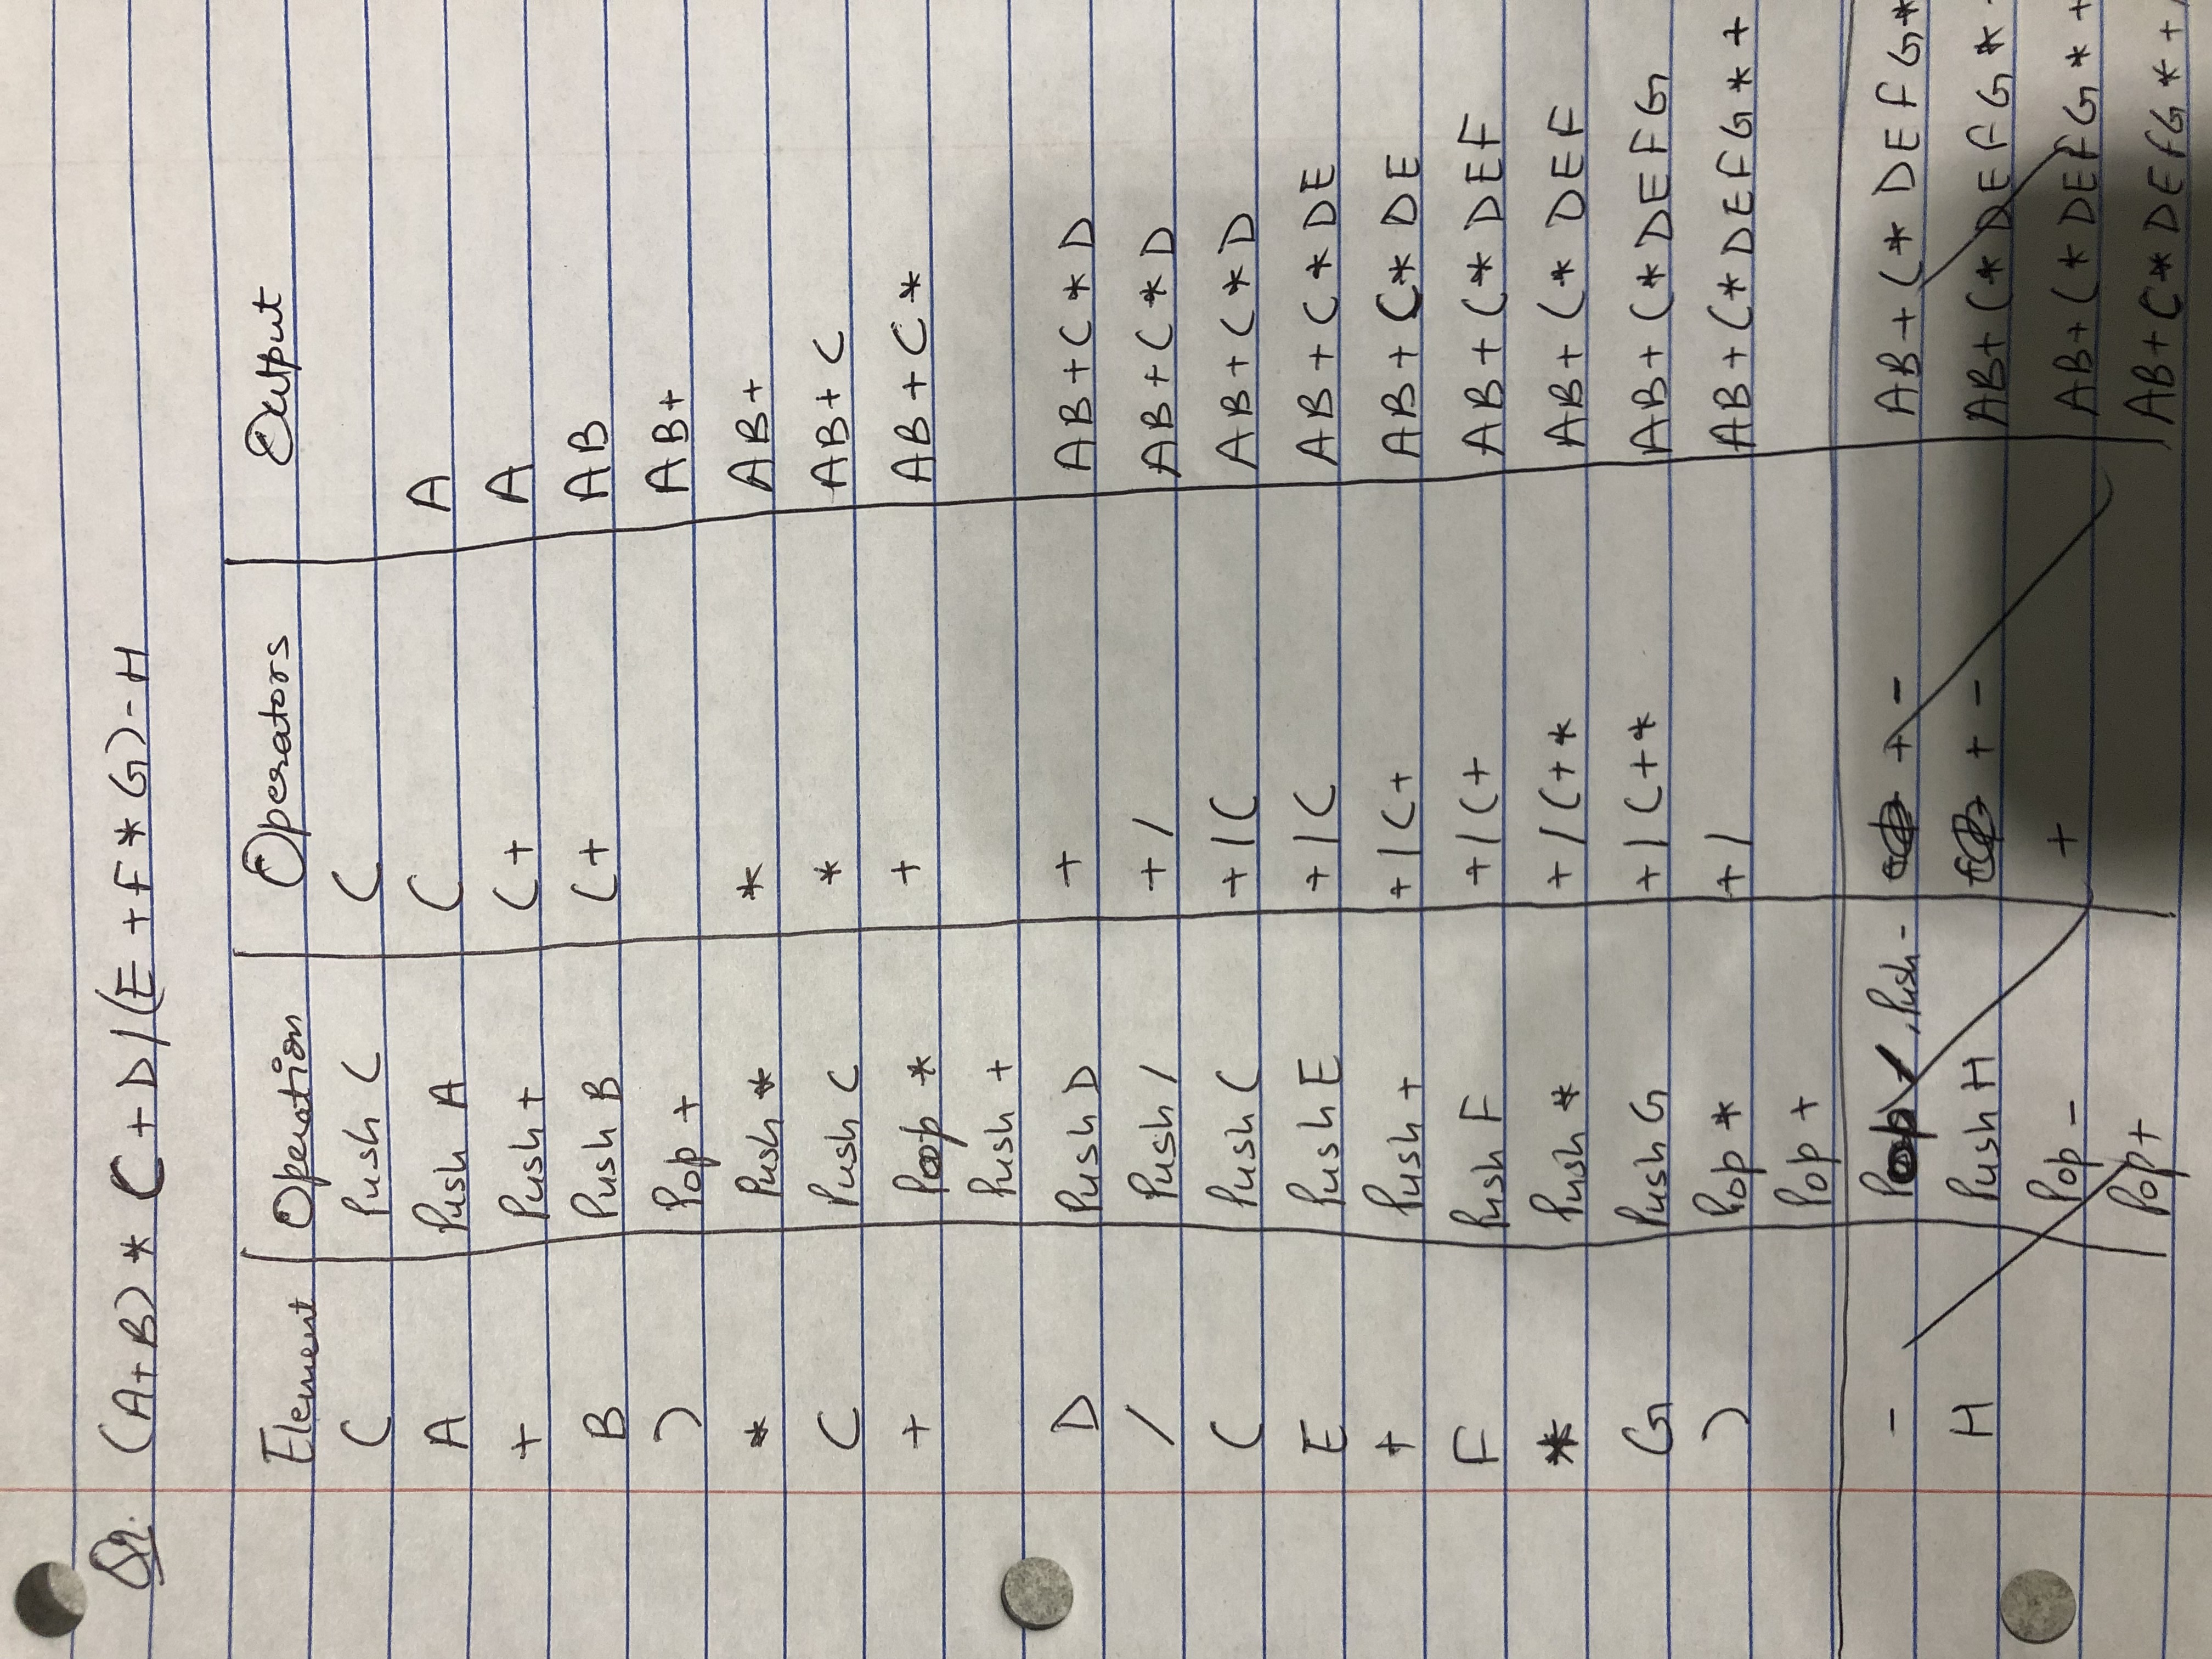 Q2. (A+B) * C + D / (E + F * G) - H
Element Operation Operators Output
( Push ( (
A Push A ( A
+ Push + ( + A
B Push B ( + AB
) Pop + AB+
* Push * * AB+
C Push C * AB+C
+ Pop * + AB+C*
Push +
D Push D + AB+C*D
/ Push / + / AB+C*D
( Push ( + / ( AB+C*D
E Push E + / ( AB+C*DE
+ Push + + / ( + AB+C*DE
F Push F + / ( + AB+C*DEF
* Push * + / ( + * AB+C*DEF
G Push G + / ( + * AB+C*DEFG
) Pop * + / AB+C*DEFG*+
Pop +
- Pop /, Push - + - AB+C*DEFG*
H Push H + - AB+C*DEFG*
Pop - + AB+C*DEFG*+
Pop + AB+C*DEFG*+